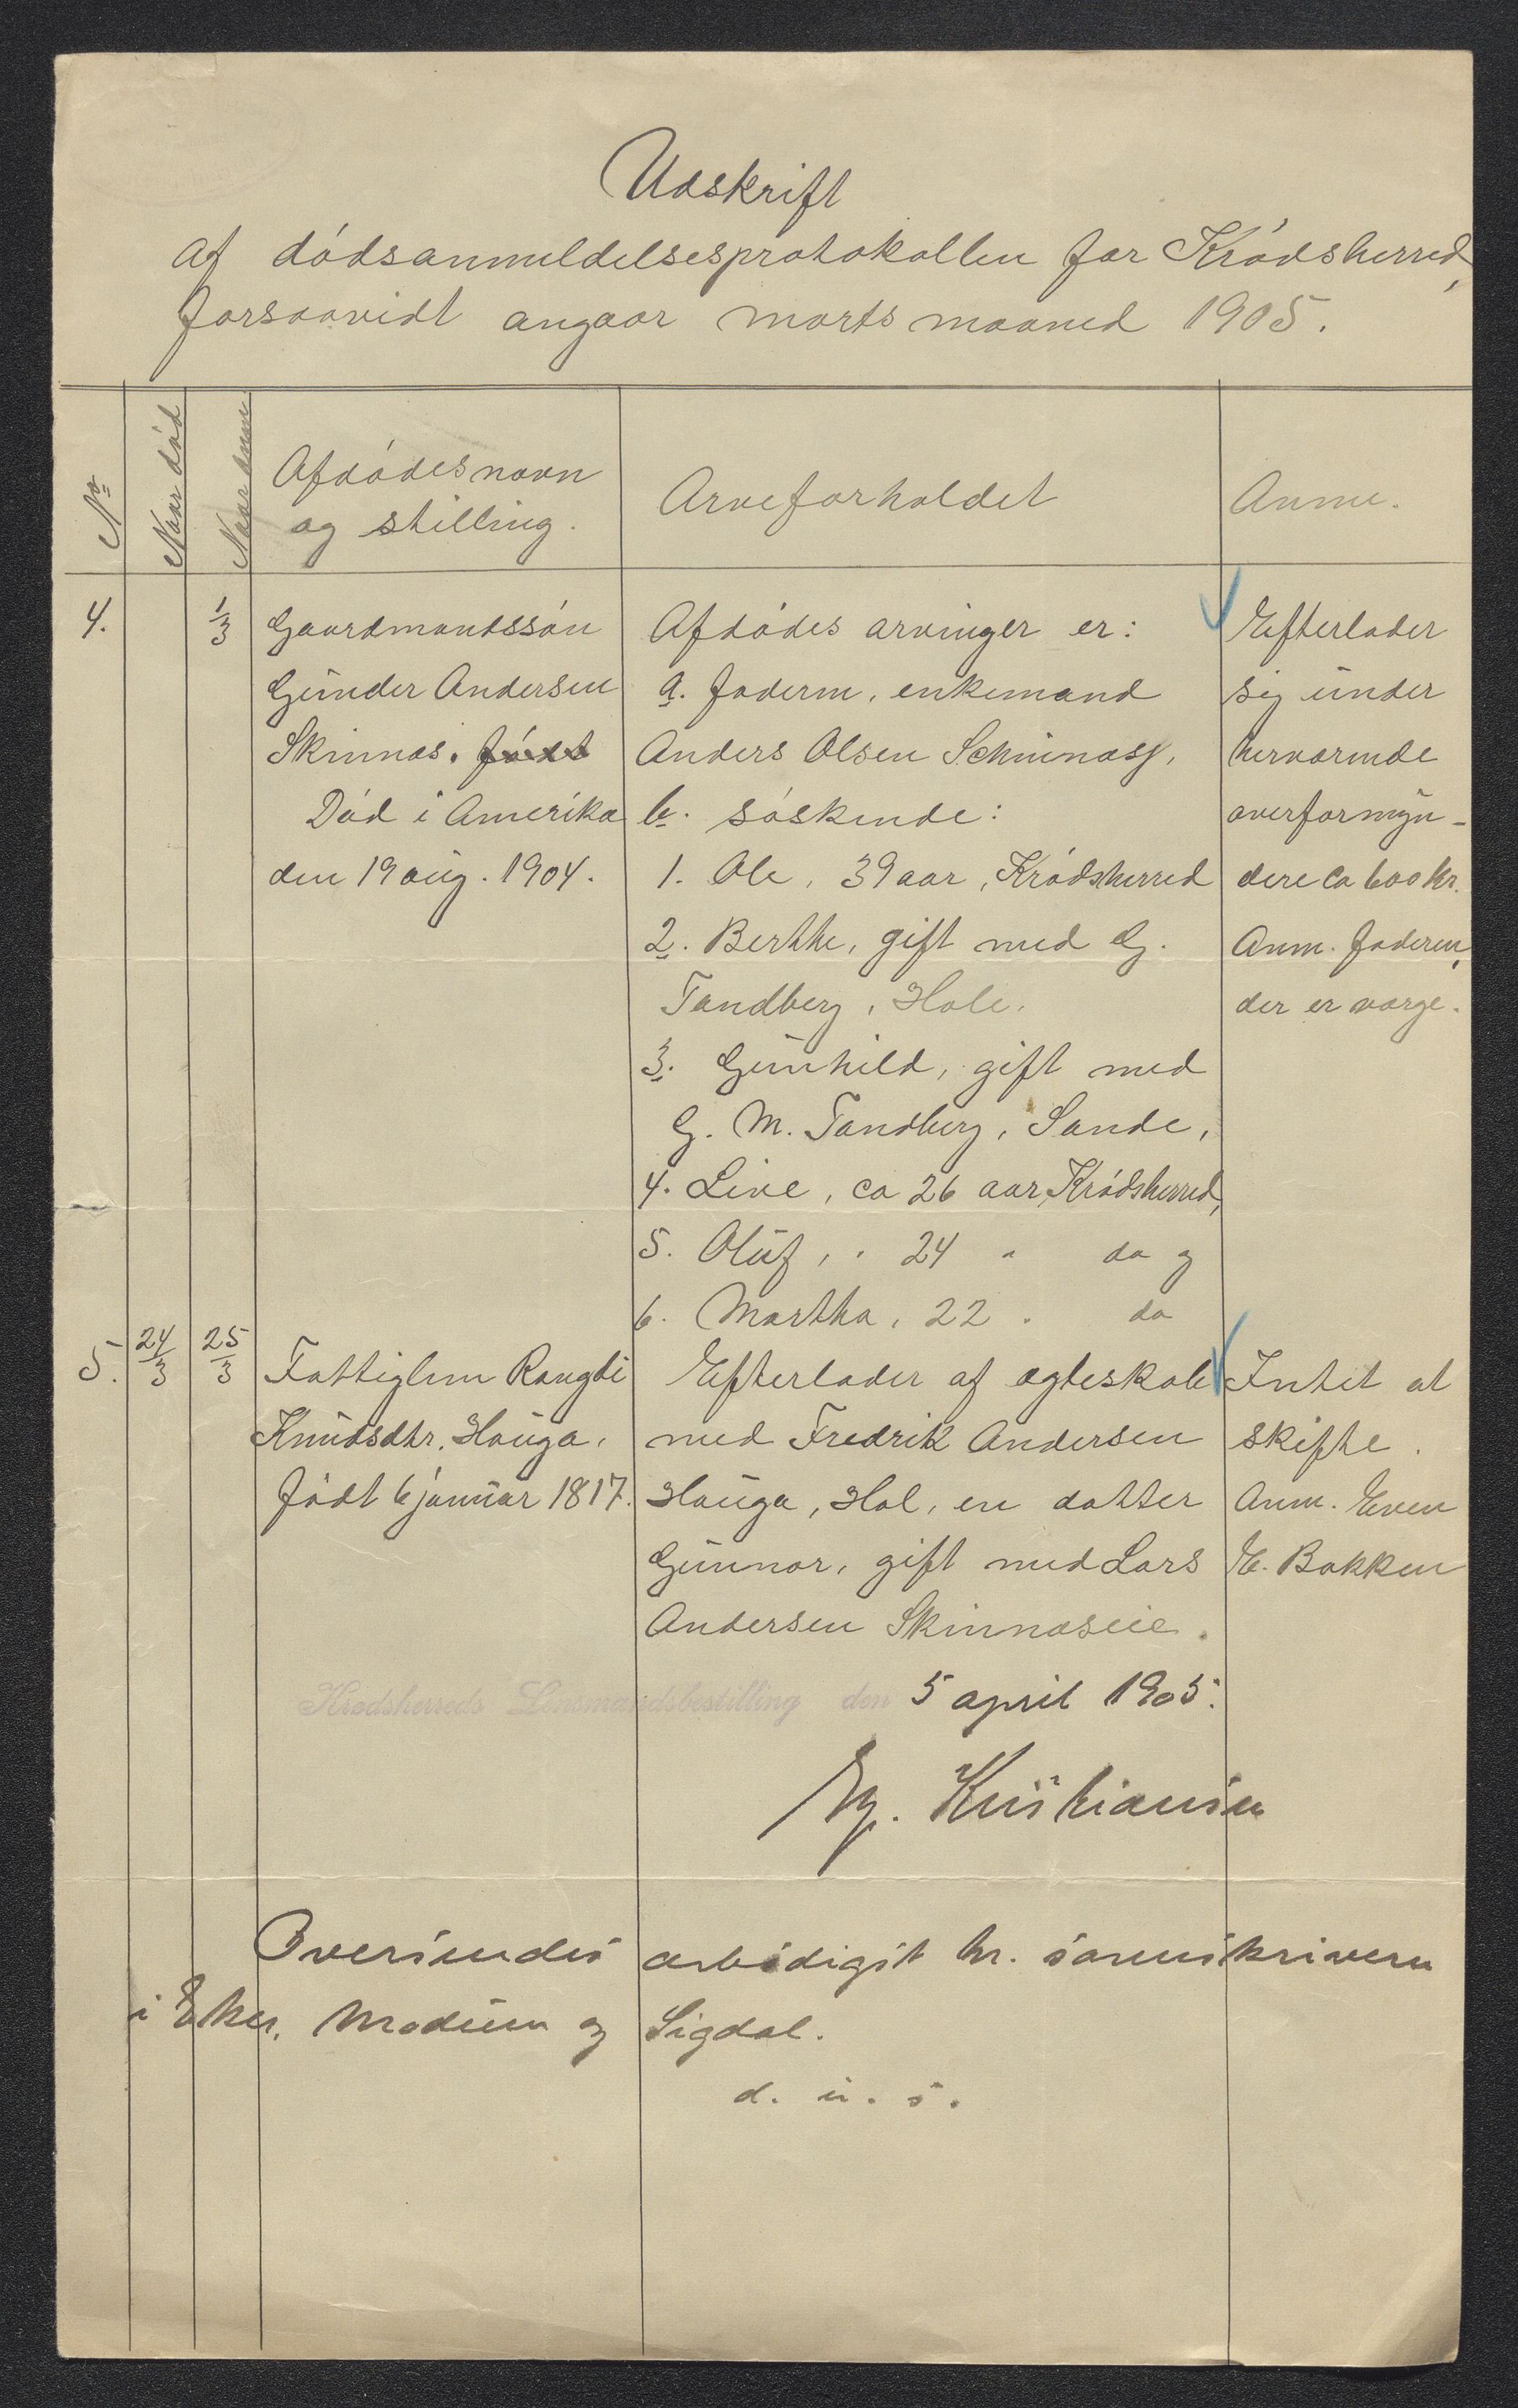 Udskrift
af dødsanmeldelsesprotokollen for Krødsherred,
forsaavidt angaar marts maaned 1905.
No
Naar død
Naar anm
Afdødes navn
og stilling.
Arveforholdet
Anm.
4.
1/3
Gaardmandssøn
Gunder Andersen
Skinnes. født
Død i Amerika
den 19 aug. 1904.
Afdødes arvinger er:
a. faderen, enkemand
Anders Olsen Schinness,
b. søskende:
1. Ole, 39 aar, Krødsherred
2. Berthe, gift med G.
Tandberg, Hole,
3. Gunhild, gift med
G. M. Tandberg, Sande,
4. Live, ca 26 aar, Krødsherred,
5. Oluf, " 24 " do og
6. Martha, 22 " do
Efterlader
sig under
herværende
overformyn-
dere ca 600 kr.
Anm. faderen,
der er værge.
5.
24/3
25/3
Fattiglem Rangdi
Knudsdtr. Hauga,
født 6 januar 1817.
Efterlader af ægteskab
med Fredrik Andersen
Hauga, Hol, en datter
Gunnor, gift med Lars
Andersen Skinneseie.
Intet at
skifte.
Anm. Even
E. Bakken
Krødsherreds Lensmandsbestilling den 5 april 1905.
Kristiansen
Oversendes ærbødigst hr. sorenskriveren
i Eker, Modum og Sigdal.
d. u. s.